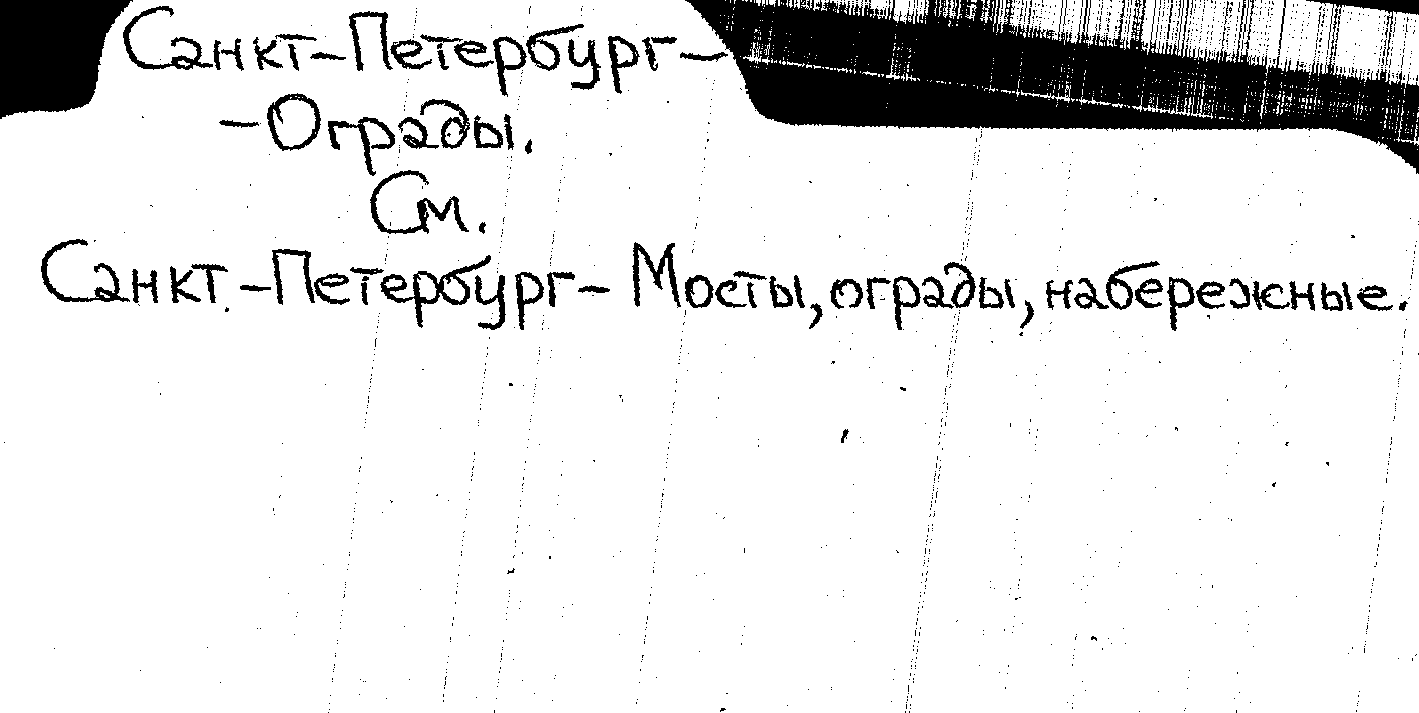 Санкт-Петербург-
-Ограды.
См.
Санкт-Петербург- Мосты, ограды, набережные.